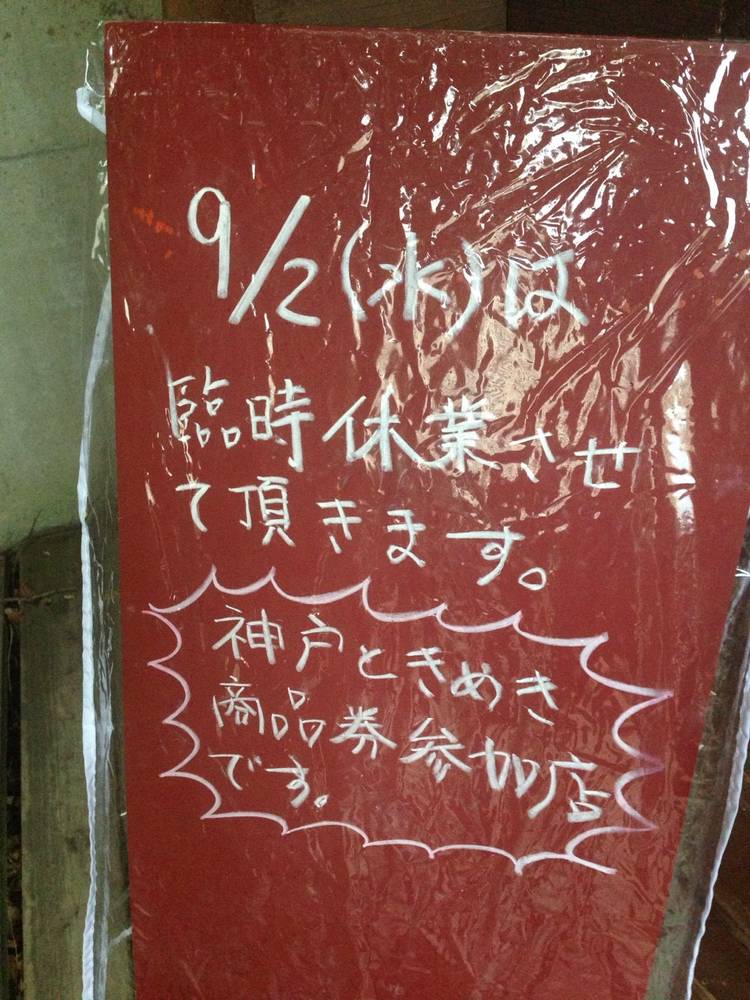 9/2(水)は
臨時休業させ
て頂きます。
神戸ときめき
商品券参加店
です。